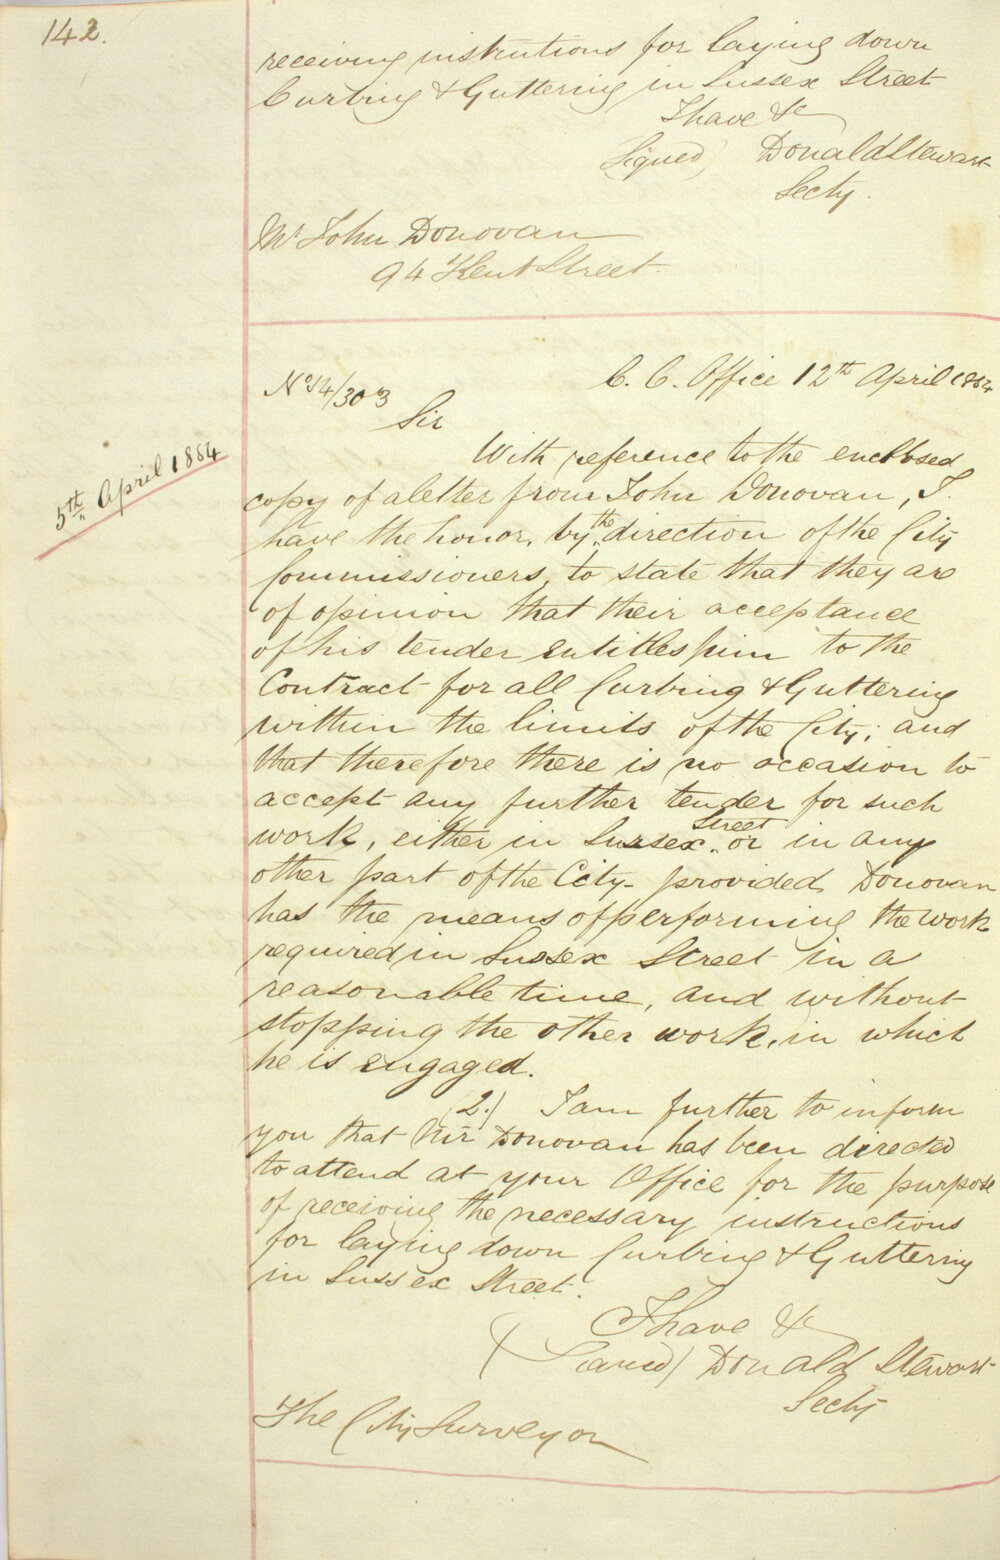 142.
receiving instructions for laying down
Curbing & Guttering in Sussex Street
I have &c
(Signed) Donald Stewart
Secty.
Mr John Donovan
94 Kent Street.
No 54/303
C. C. Office 12th April 1854
5th April 1854
Sir
With reference to the enclosed
copy of a letter from John Donovan, I
have the honor, by the direction of the City
Commissioners, to state that they are
of opinion that their acceptance
of his tender entitles him to the
Contract for all Curbing & Guttering
within the limits of the City; and
that therefore there is no occasion to
accept any further tender for such
work, either in Sussex Street or in any
other part of the City - provided Donovan
has the means of performing the work
required in Sussex Street in a
reasonable time, and without
stopping the other work, in which
he is engaged.
2.) I am further to inform
you that Mr Donovan has been directed
to attend at your Office for the purpose
of receiving the necessary instructions
for laying down Curbing & Guttering
in Sussex Street.
I have &c
(Signed) Donald Stewart
Secty
The City Surveyor